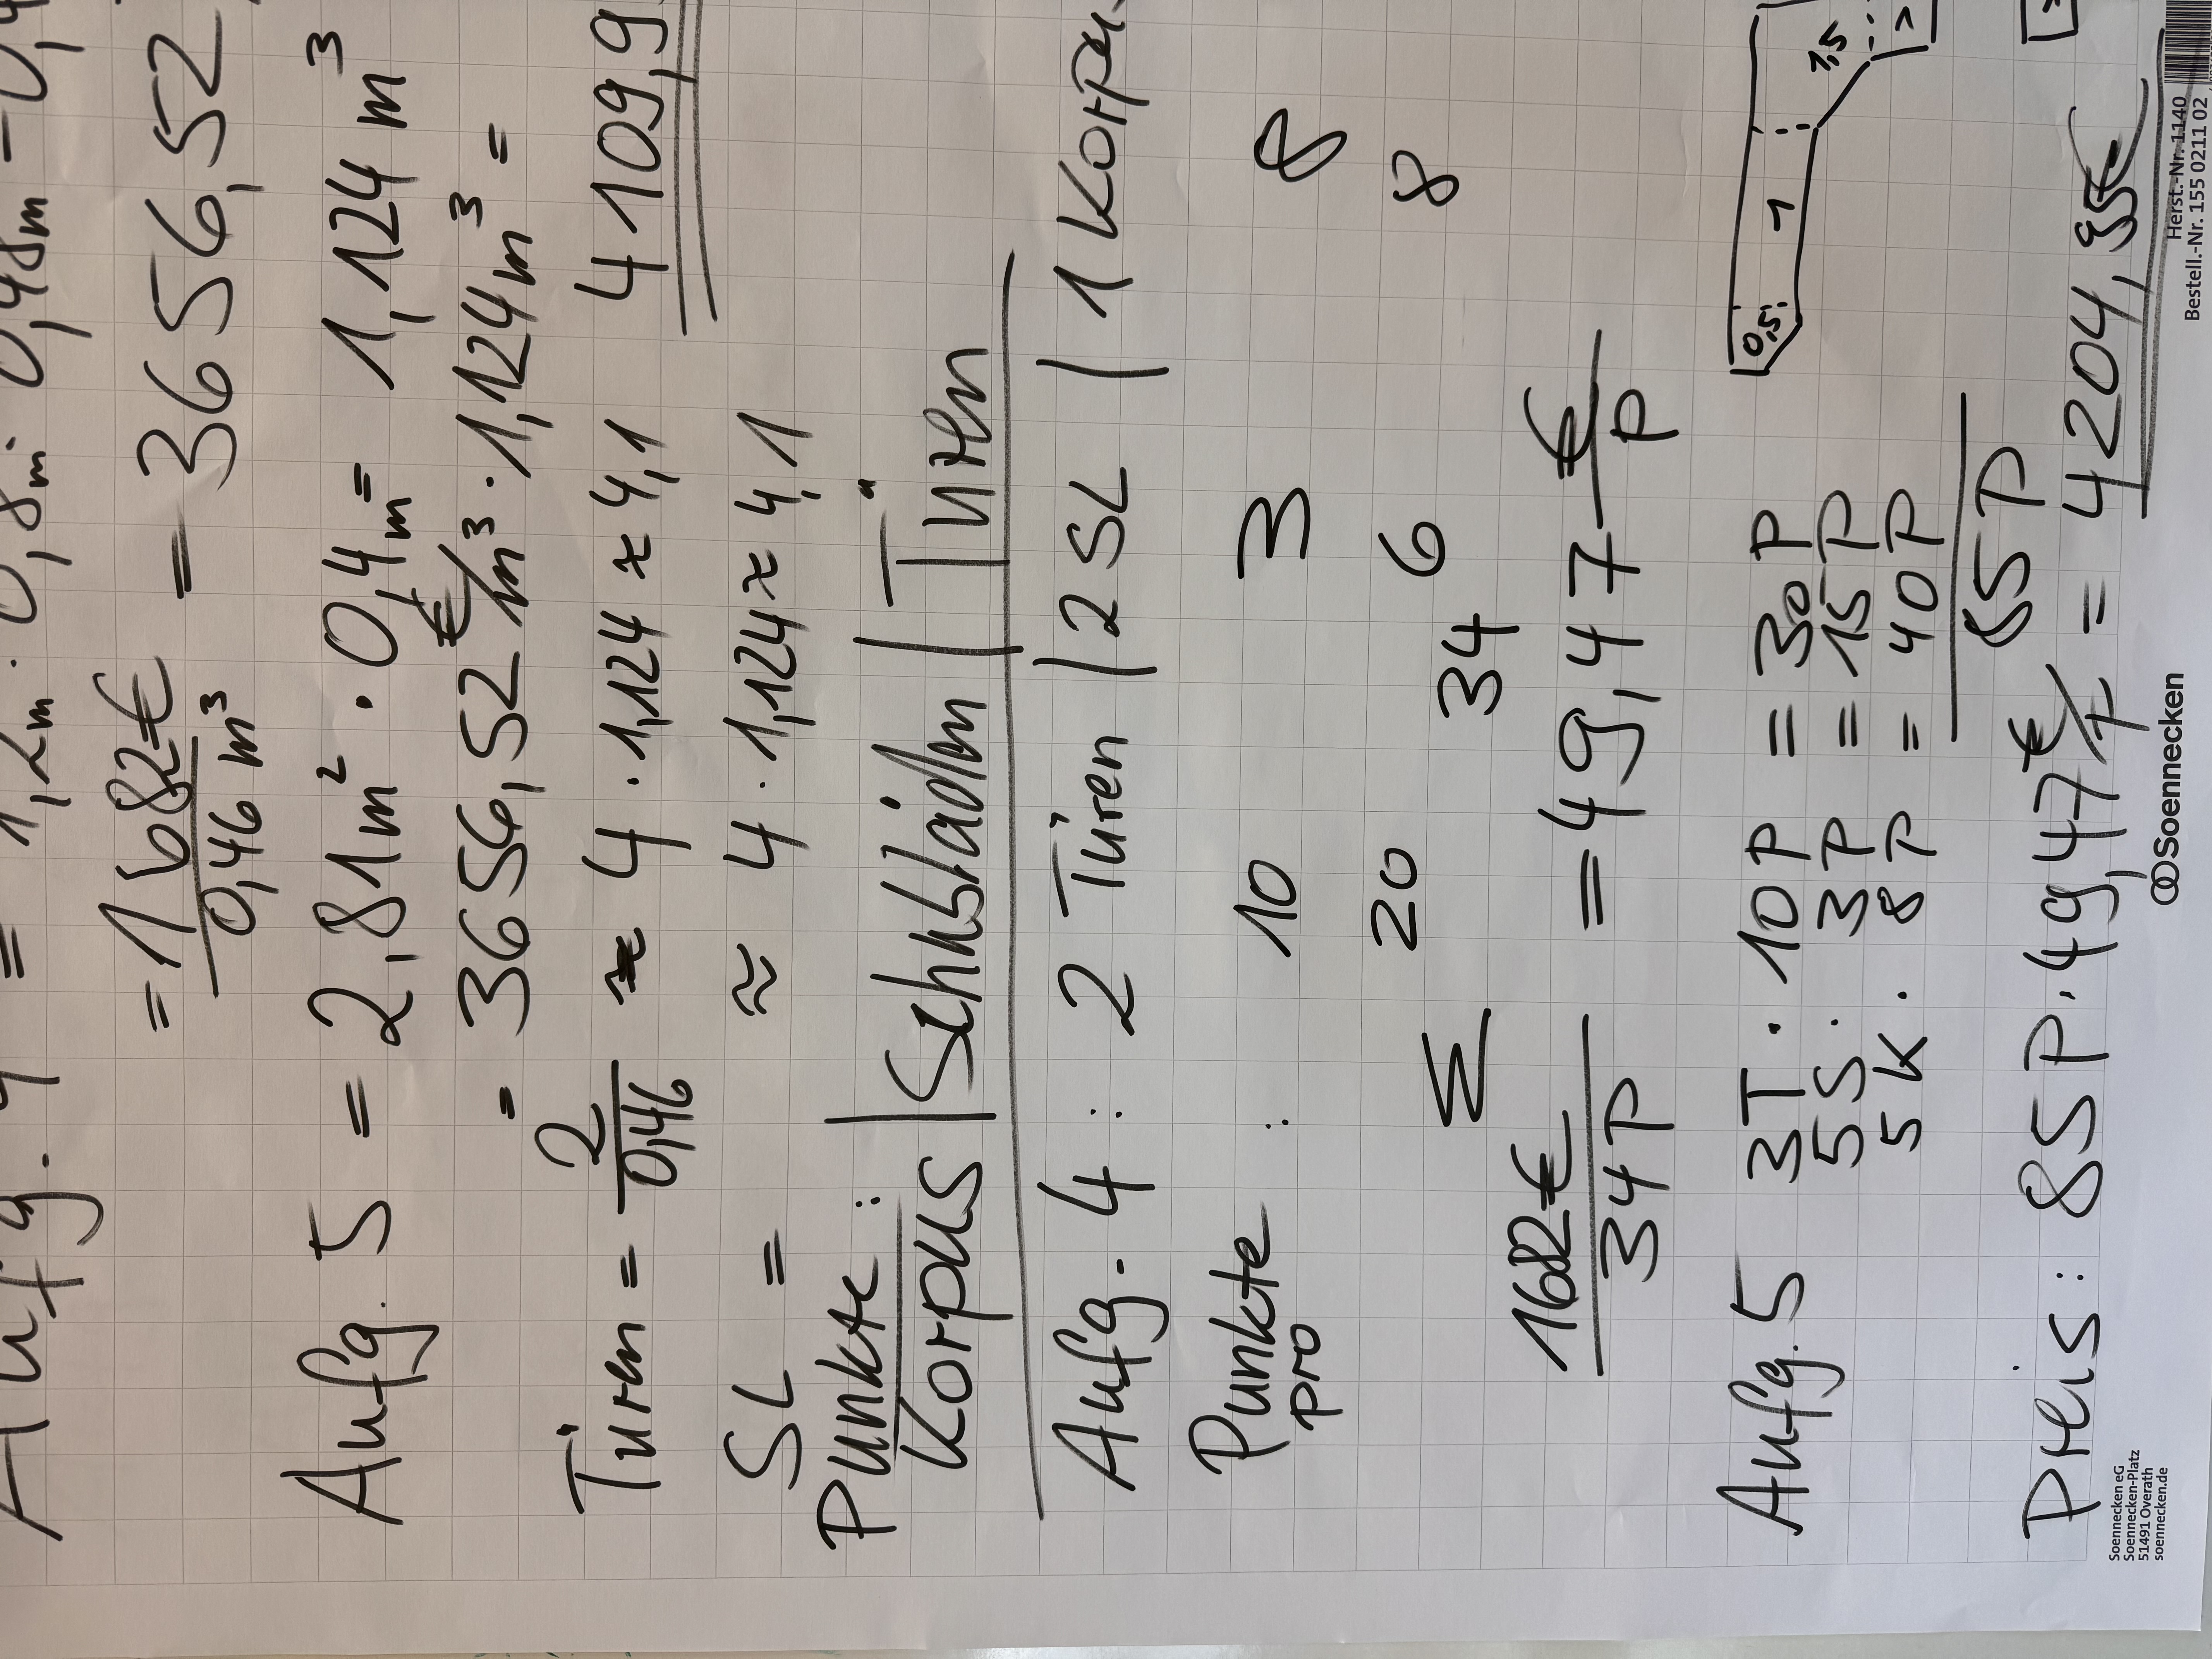 = 1682€ / 0,46 m³ = 3656,52
Aufg. 5 = 2,81m² · 0,4m = 1,124 m³
= 3656,52 €/m³ · 1,124m³ =
Türen = 2/0,46 ≈ 4 · 1,124 ≈ 4,1 4109,9
SL = ≈ 4 · 1,124 ≈ 4,1
Punkte:
Korpus | Schubladm | Türen
Aufg. 4 : 2 Türen | 2 SL | 1 Korpu
Punkte pro : 10 3 8
20 6 8
Σ 34
1682€ / 34 P = 49,47 € / P
Aufg. 5 3T · 10P = 30P
5S · 3P = 15P
5K · 8P = 40P
0,5
1
1,5
85P
Preis: 85P · 49,47€/P = 4204,95€
Soennecken eG
Soennecken-Platz
51491 Overath
soennecken.de
Soennecken
Herst.-Nr. 1140
Bestell.-Nr. 155 0211 02